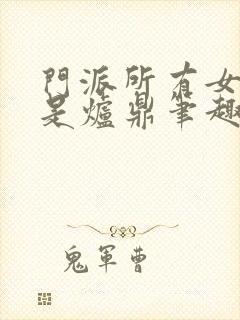 門派所有女
是爐鼎筆趣
鬼軍曹